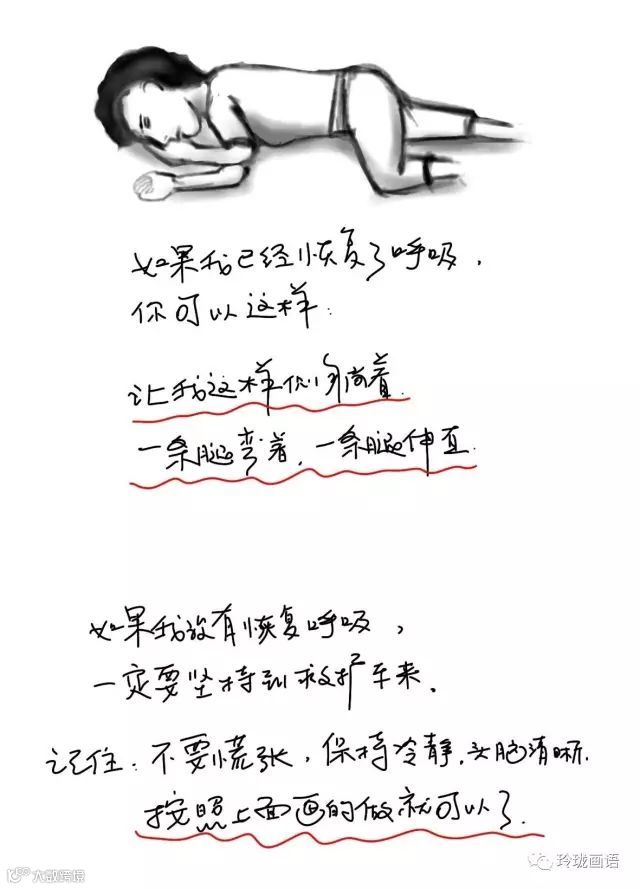 如果我已经恢复了呼吸，
你可以这样：
让我这样侧身躺着.
一条腿弯着，一条腿伸直.
如果我没有恢复呼吸，
一定要坚持到救护车来.
记住：不要慌张，保持冷静，头脑清晰.
按照上面画的做就可以了.
玲珑画语
大数跨境